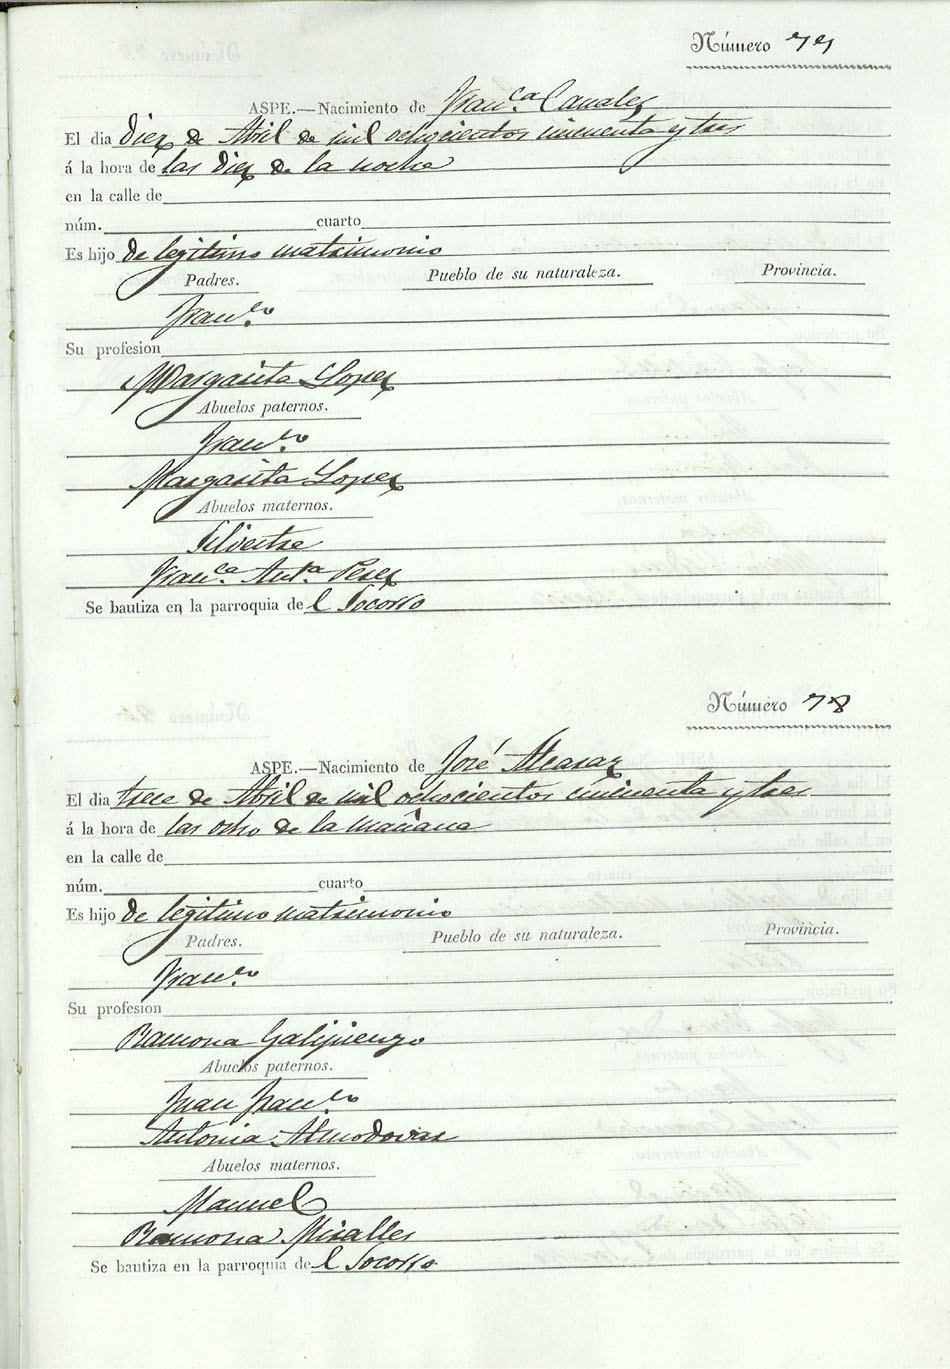 Número 77
ASPE.—Nacimiento de Fran.ca Canales
El dia diez de Abril de mil ochocientos cincuenta y tres
á la hora de las diez de la noche
en la calle de
núm. cuarto
Es hijo de legitimo matrimonio
Padres. Pueblo de su naturaleza. Provincia.
Fran.co
Su profesion
Margarita Lopez
Abuelos paternos.
Fran.co
Margarita Lopez
Abuelos maternos.
Silvestre
Fran.ca Ant.a Perez
Se bautiza en la parroquia de l Socorro
Número 78
ASPE.—Nacimiento de José Alcaraz
El dia trece de Abril de mil ochocientos cincuenta y tres
á la hora de las ocho de la mañana
en la calle de
núm. cuarto
Es hijo de legitimo matrimonio
Padres. Pueblo de su naturaleza. Provincia.
Fran.co
Su profesion
Ramona Galipienzo
Abuelos paternos.
Juan Fran.co
Antonia Almodovar
Abuelos maternos.
Manuel
Ramona Miralles
Se bautiza en la parroquia de l Socorro